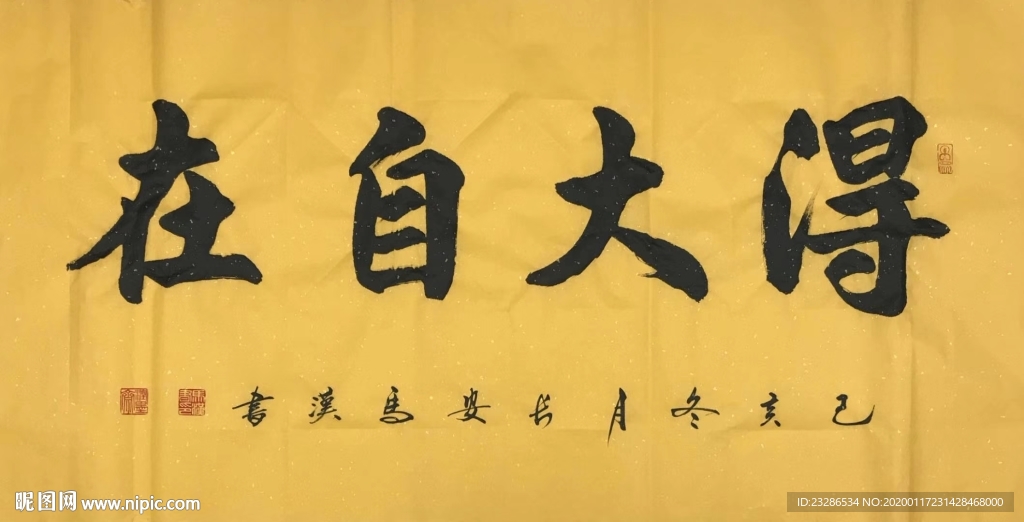 得大自在
己亥冬月长安马汉书
昵图网 www.nipic.com
ID:23286534 NO:20200117231428468000